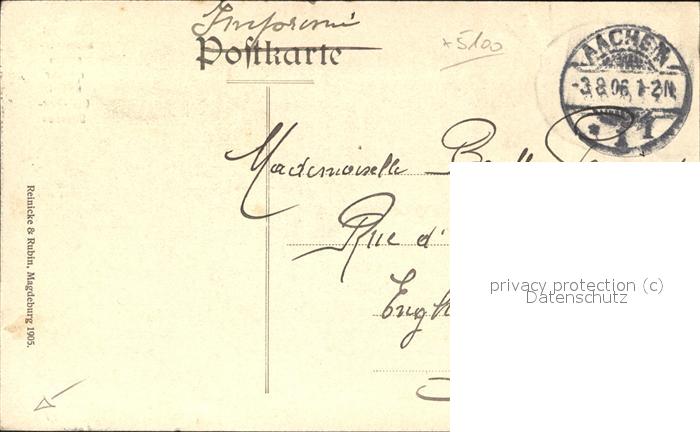 Imprimé
Postkarte
+5100
AACHEN
-3.8.06. 1-2N.
* 1 1
Mademoiselle
Rue d'
Engh
privacy protection (c)
Datenschutz
Reinicke & Rubin, Magdeburg 1905.